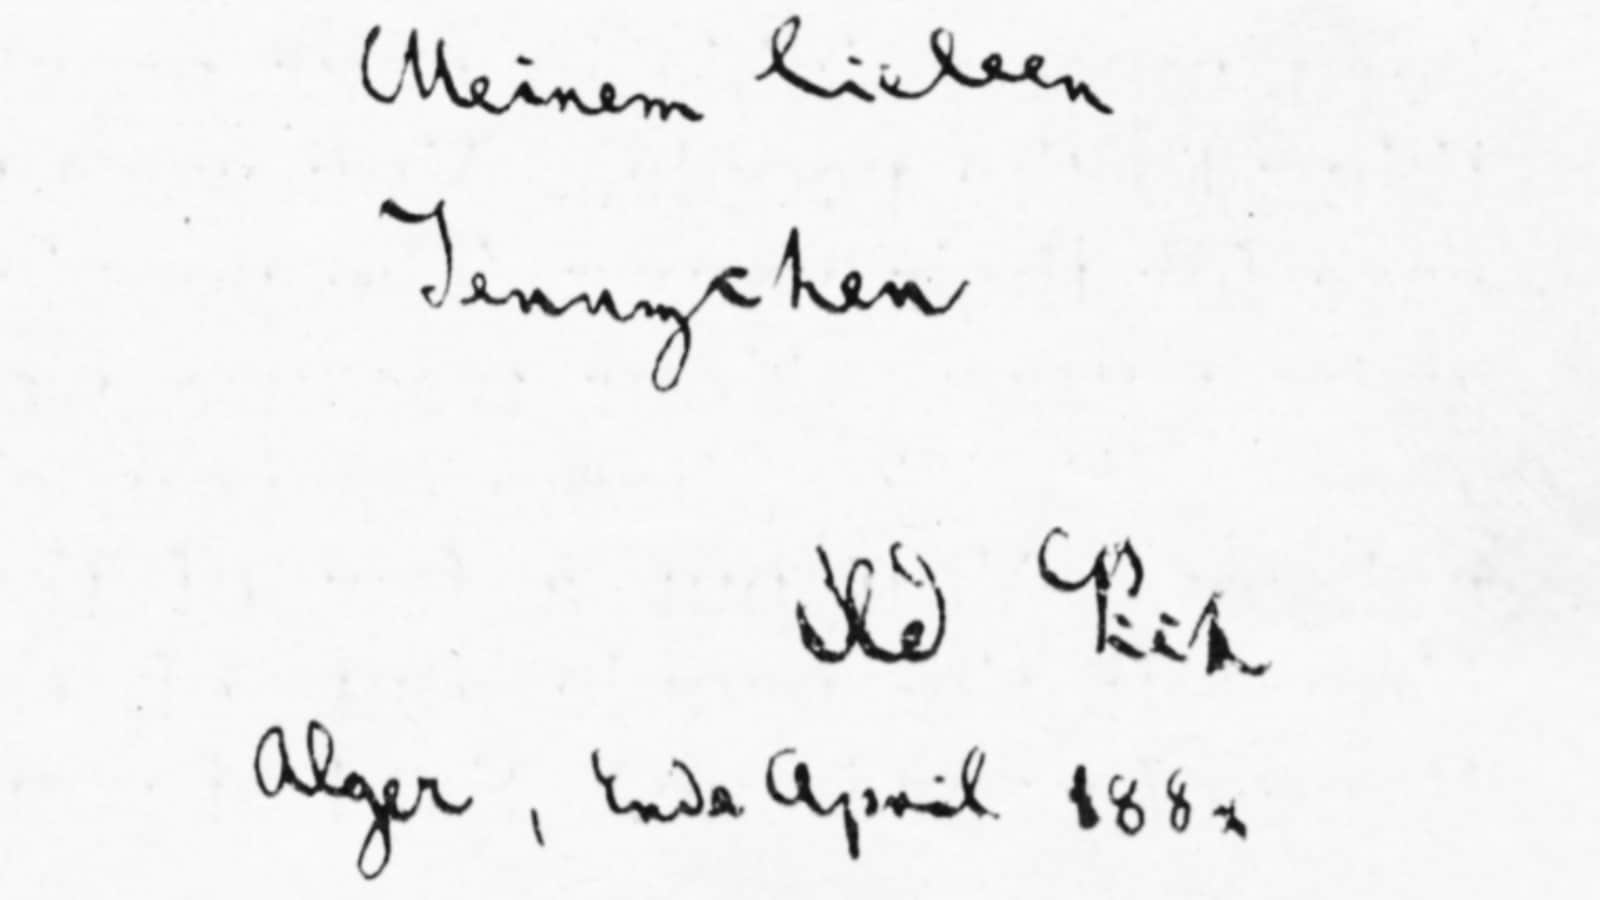 Meinem lieben
Jennychen
Old Nick
Alger, Ende April 1882